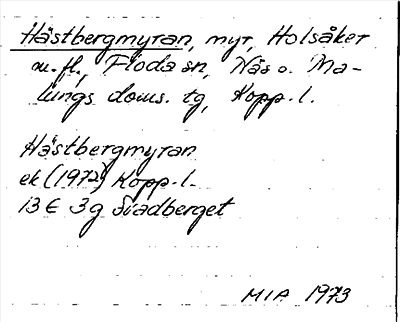 Hästbergmyran, myr, Holsåker
m.fl., Floda sn, Nås o. Ma-
lungs doms. tg, Kopp. l.
Hästbergmyran
ek (1972) Kopp. l.
13 E 3g Svadberget
MIA 1973